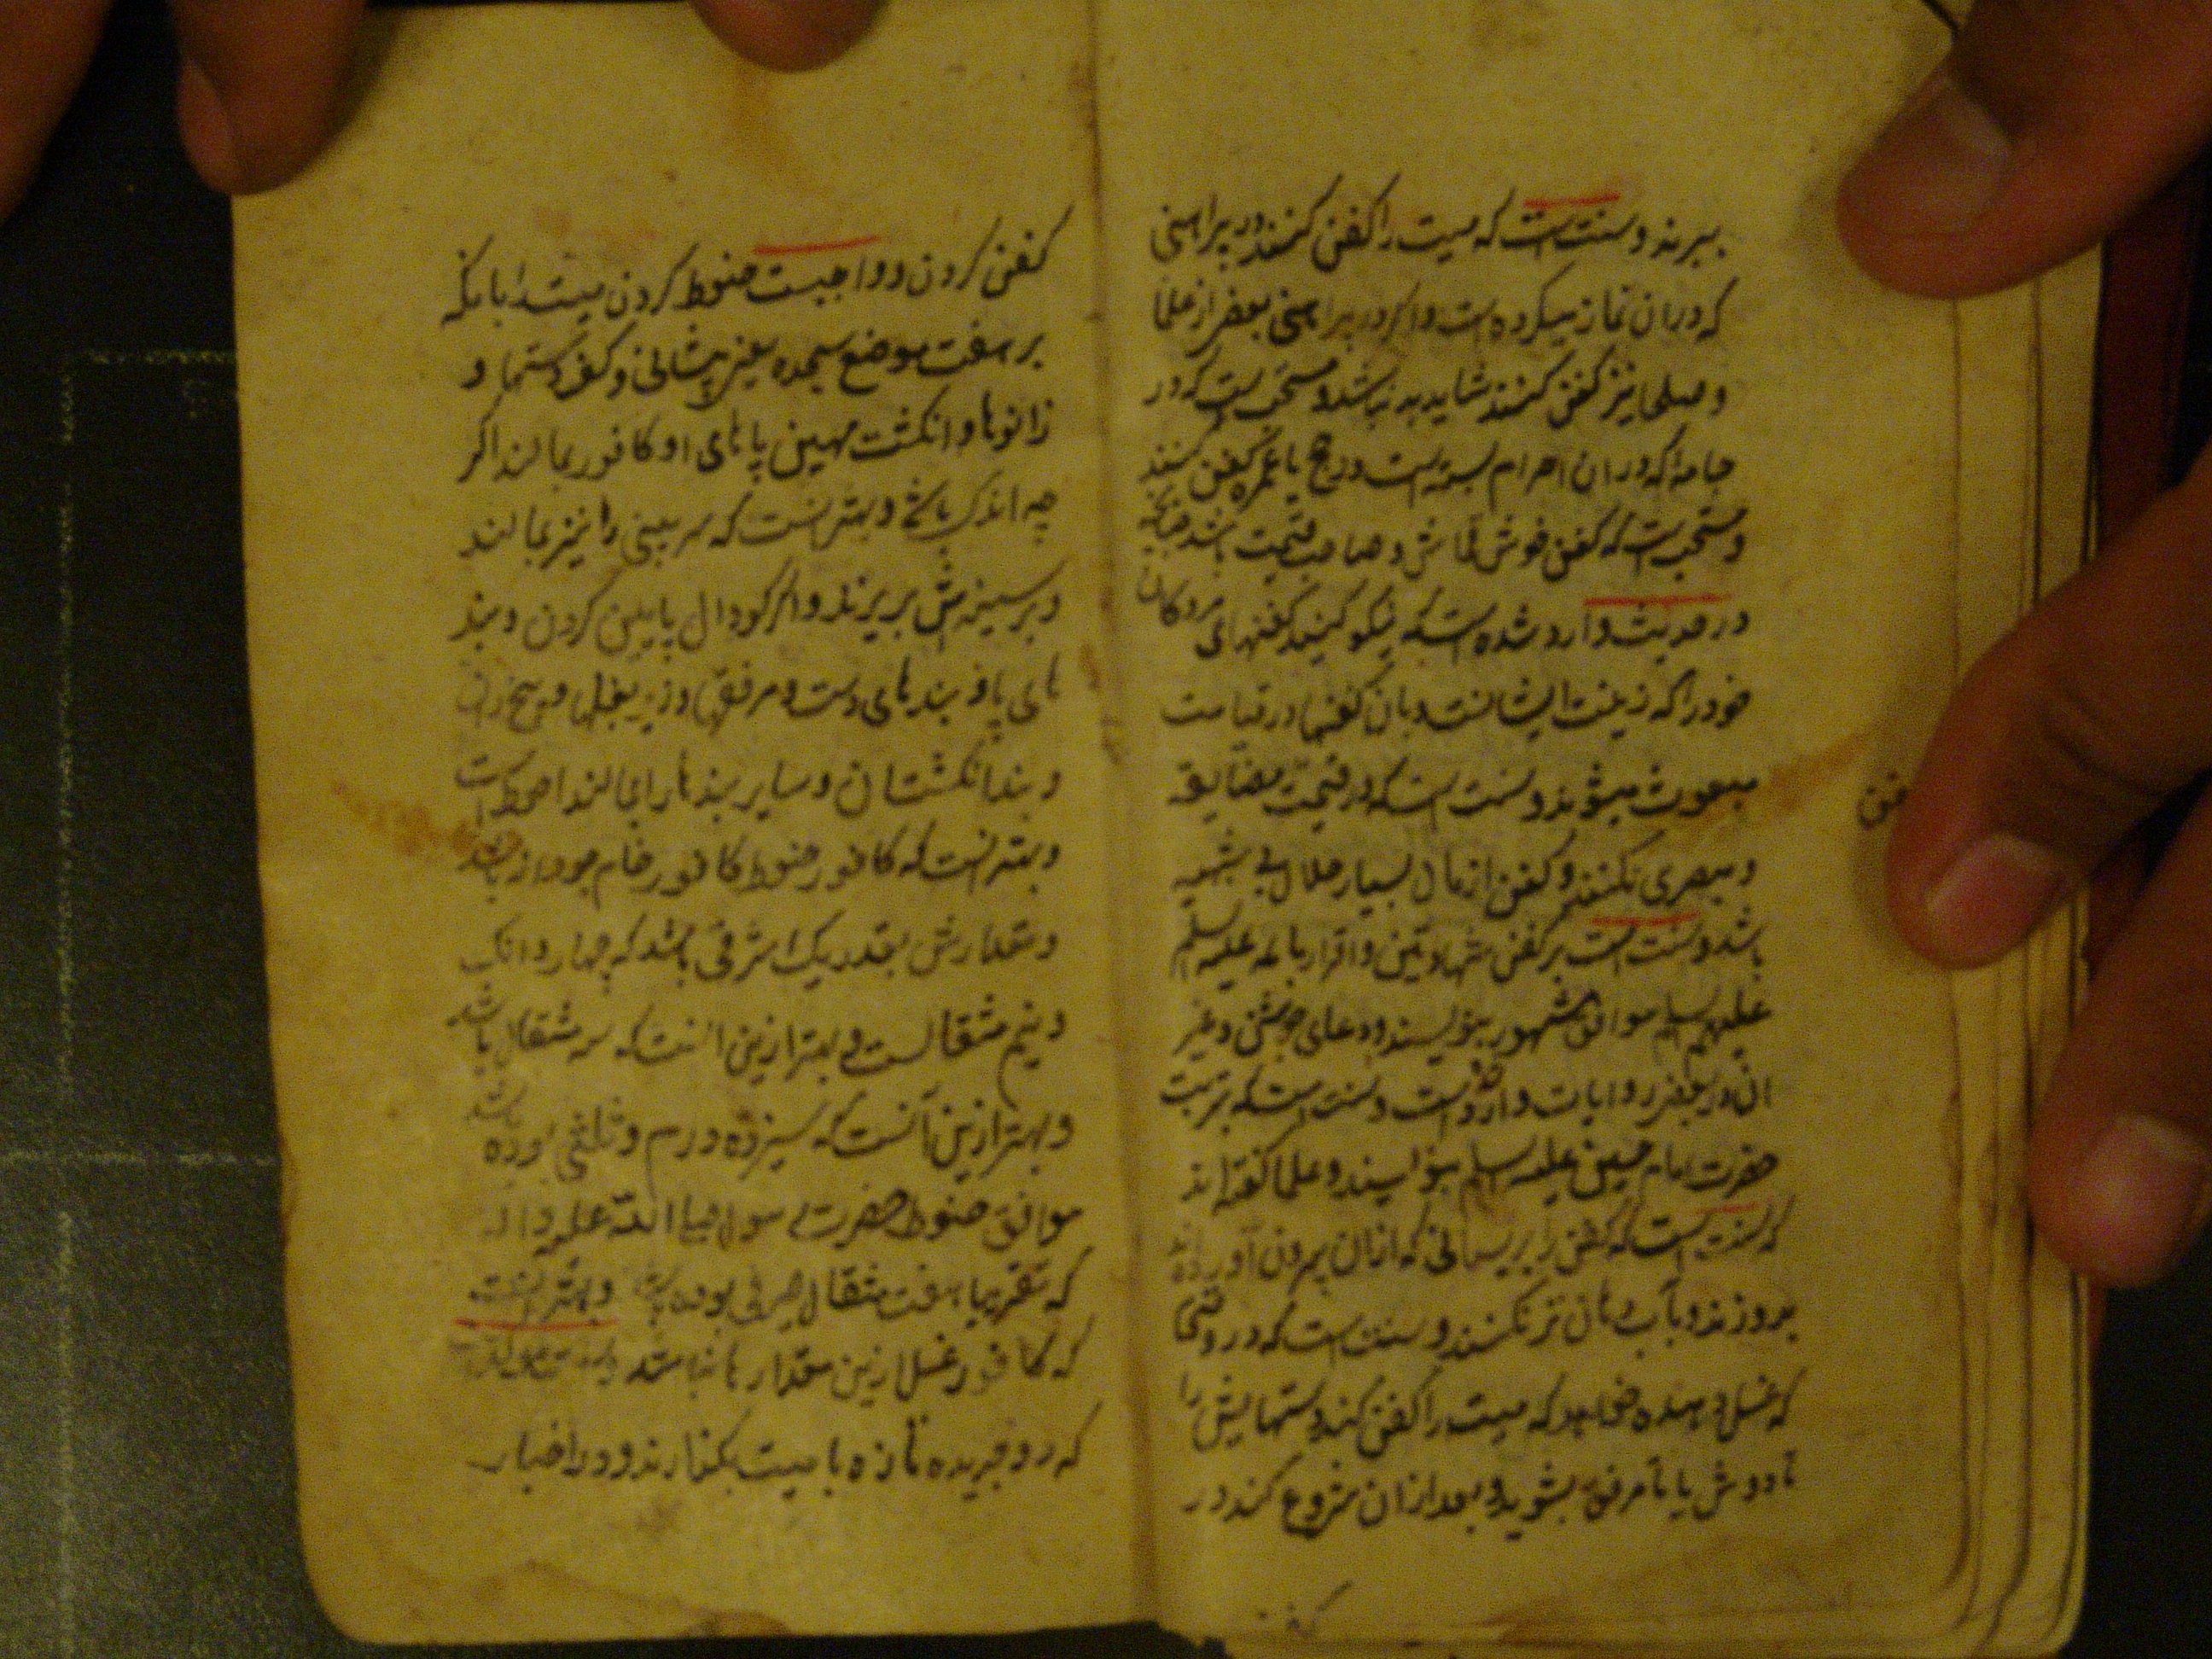 ببرند و سنت است که میت را کفن کنند در پیراهنی
که دران نماز میکرده است و اگر در پیراهنی بعضی از علما
و صلحا نیز کفن کنند شاید بد نباشد و مستحب است که در
جامه که دران احرام بسته است در حج یا عمره کفن کنند
و مستحب است که کفن خوش قماش و صاحب قیمت باشد چنانچه
در حدیث وارد شده است که نیکو کنید کفنهای مردکان
خود را که زینت ایشانست و بان کفنها در قیامت
مبعوث میشوند و سنت است که در قیمت مضایقه
کفن
و مبصری نکنند و کفن از مال بسیار حلال بی شبهه
باشد و سنت است بر کفن شهادتین و اقرار بائمه علیه سلم
علیهم سلم موافق مشهور بنویسند و دعای جوشن و غیر
ان در بعضی روایات وارد شده است و سنت است که بتربت
حضرت امام حسین علیه سلم بنویسند و علما کفته اند
که سنت است که کفن را بریسمانی که ازان بیرون آورده اند
بدوزند و بآب دهان تر نکنند و سنت است که در وقتی
که غسل دهنده خواهد که میت را کفن کند دستهایش را
تا دوش یا تا مرفق بشوید و بعد ازان شروع کند در
کفن
کفن کردن و واجبست حنوط کردن میت را بانکه
بر هفت موضع سجده یعنی پیشانی و کف دستها و
زانوها و انکشت مهین پاهای او کافور بمالند اکر
چه اندک باشد و بهتر انست که سر بینی را نیز بمالند
و بر سینه اش بریزند و اکر کودال پایین کردن و بند
های پا و بندهای دست و مرفقها و زیر بغلها و بیخ ران
و بند انکشتان و سایر بندها را بمالند احوط است
و بهتر انست که کافور حنوط کافور خام جودانه باشد
و مقدارش بقدر یک اشرفی باشد که چهار دانک
و نیم مثقالست و بهتر ازین انست که سه مثقال باشد
و بهتر ازین آنست که سیزده درم و ثلثی بوده باشد
موافق حنوط حضرت رسول صلی الله علیه و اله
که تقریبا هفت مثقال صیرفی بوده است و بهتر انست
که کافور غسل ازین مقدارها نباشد
که دو جریده تازه با میت بکذارند و در اخبار